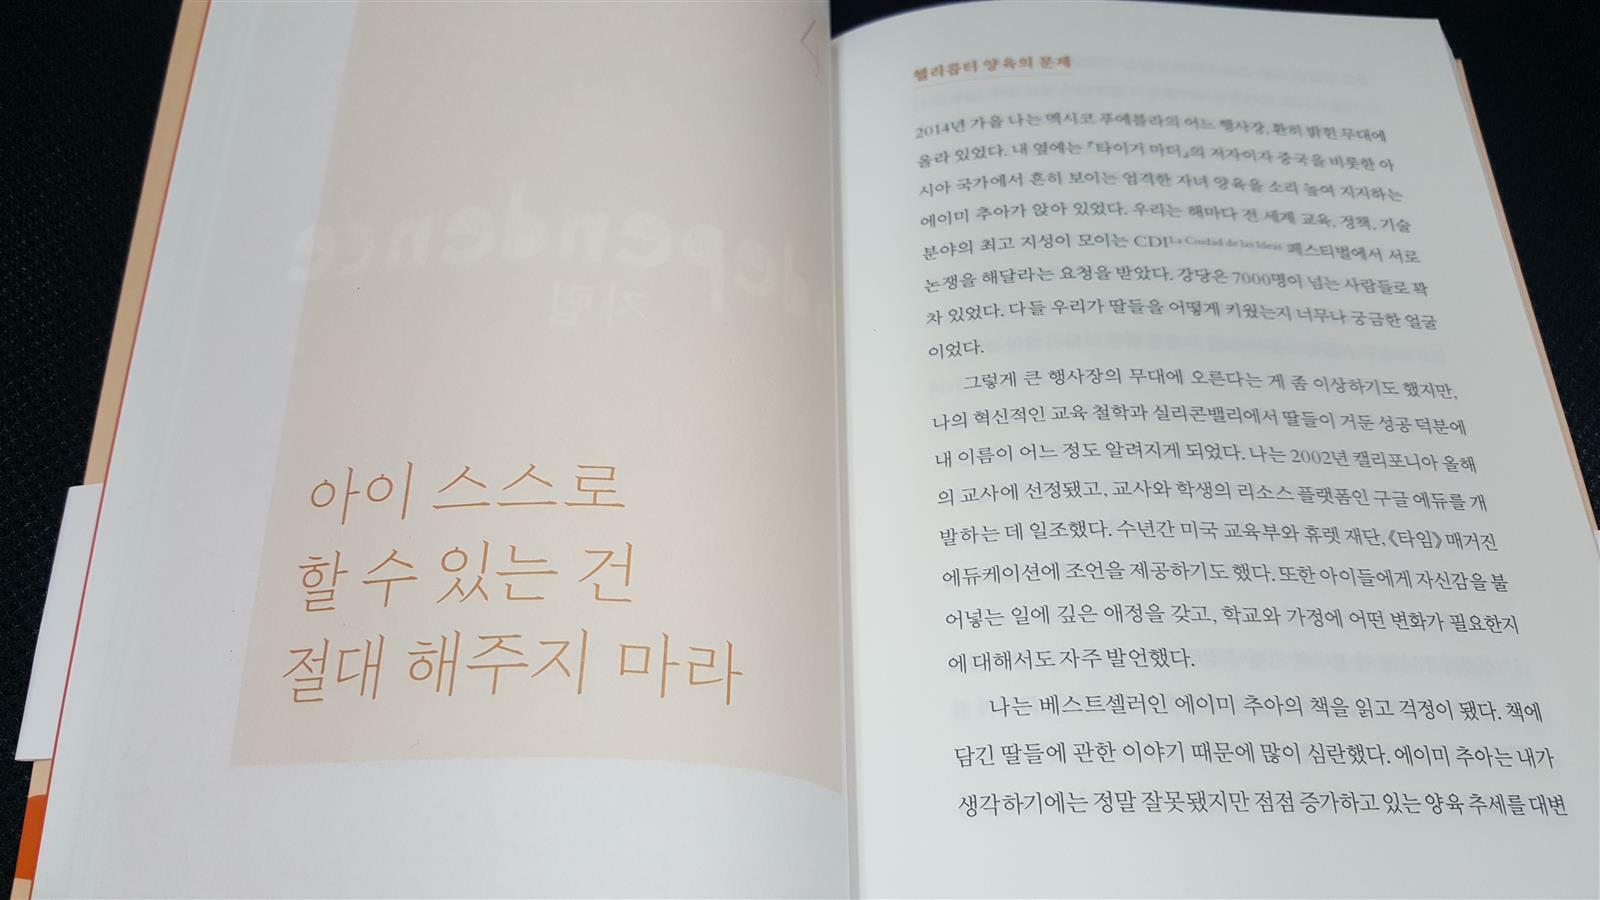 아이 스스로
할 수 있는 건
절대 해주지 마라
헬리콥터 양육의 문제
2014년 가을 나는 멕시코 푸에블라의 어느 행사장, 환히 밝힌 무대에
올라 있었다. 내 옆에는 『타이거 마더』의 저자이자 중국을 비롯한 아
시아 국가에서 흔히 보이는 엄격한 자녀 양육을 소리 높여 지지하는
에이미 추아가 앉아 있었다. 우리는 해마다 전 세계 교육, 정책, 기술
분야의 최고 지성이 모이는 CDI La Ciudad de las Ideas 페스티벌에서 서로
논쟁을 해달라는 요청을 받았다. 강당은 7000명이 넘는 사람들로 꽉
차 있었다. 다들 우리가 딸들을 어떻게 키웠는지 너무나 궁금한 얼굴
이었다.
그렇게 큰 행사장의 무대에 오른다는 게 좀 이상하기도 했지만,
나의 혁신적인 교육 철학과 실리콘밸리에서 딸들이 거둔 성공 덕분에
내 이름이 어느 정도 알려지게 되었다. 나는 2002년 캘리포니아 올해
의 교사에 선정됐고, 교사와 학생의 리소스 플랫폼인 구글 에듀를 개
발하는 데 일조했다. 수년간 미국 교육부와 휴렛 재단, 《타임》 매거진
에듀케이션에 조언을 제공하기도 했다. 또한 아이들에게 자신감을 불
어넣는 일에 깊은 애정을 갖고, 학교와 가정에 어떤 변화가 필요한지
에 대해서도 자주 발언했다.
나는 베스트셀러인 에이미 추아의 책을 읽고 걱정이 됐다. 책에
담긴 딸들에 관한 이야기 때문에 많이 심란했다. 에이미 추아는 내가
생각하기에는 정말 잘못됐지만 점점 증가하고 있는 양육 추세를 대변